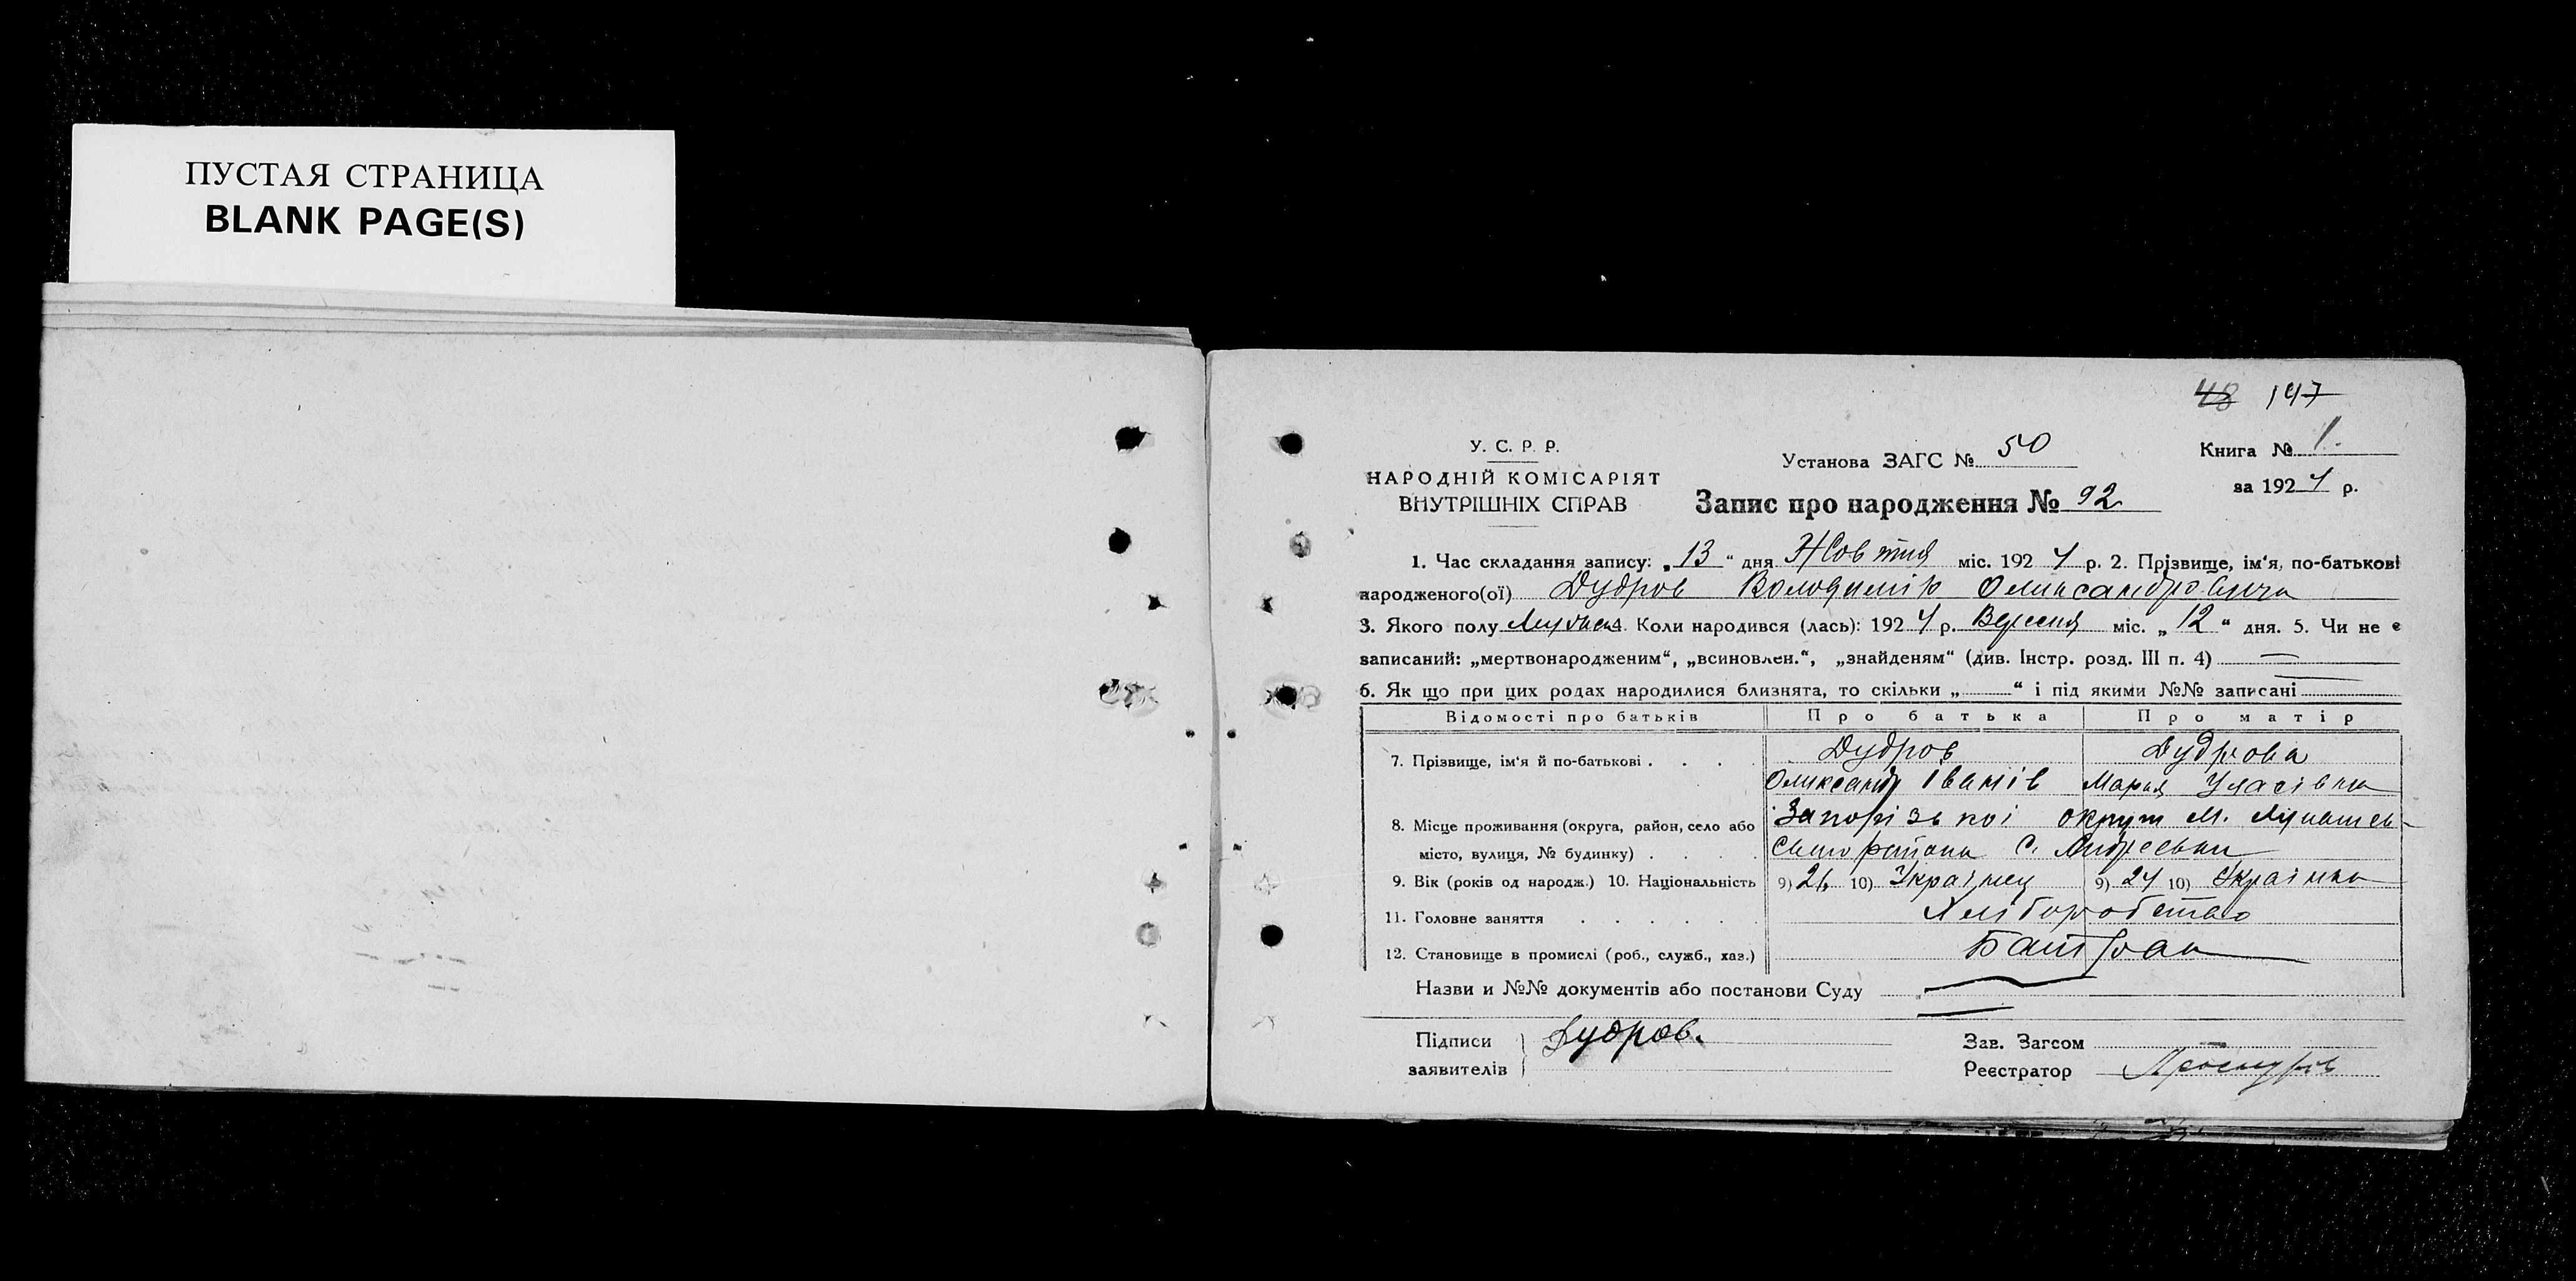 ПУСТАЯ СТРАНИЦА
BLANK PAGE(S)
48 147
У. С. Р. Р.
НАРОДНІЙ КОМІСАРІЯТ
ВНУТРІШНІХ СПРАВ
Установа ЗАГС № 50
Книга № 1.
за 1924 р.
Запис про народження № 92
1. Час складання запису: „13“ дня Жовтня міс. 1924 р. 2. Прізвище, ім‘я, по-батькові
народженого(ої) Дудров Володимір Олександровича
3. Якого полу 4. Коли народився (лась): 1924 р. Вересня міс. „12“ дня. 5. Чи не є
записаний: „мертвонародженим“, „всиновлен.“, „знайденям“ (див. Інстр. розд. III п. 4) —
6. Як що при цих родах народилися близнята, то скільки „—“ і під якими №№ записані
Відомості про батьків Про батька Про матір
7. Прізвище, ім‘я й по-батькові . . . . Дудров Дудрова
Олександр Іванів Мария Уласівна
8. Місце проживання (округа, район, село або Запорізькоі округи М.
місто, вулиця, № будинку) . . . . района С. Андреевки
9. Вік (років од народж.) 10. Національність 9) 26 10) Украінец 9) 24 10) Украінка
11. Головне заняття . . . . . . Хліборобство
12. Становище в промислі (роб., служб., хаз.) Батрак
Назви и №№ документів або постанови Суду —
Підписи
заявителів
Дудров.
Зав. Загсом —
Реєстратор